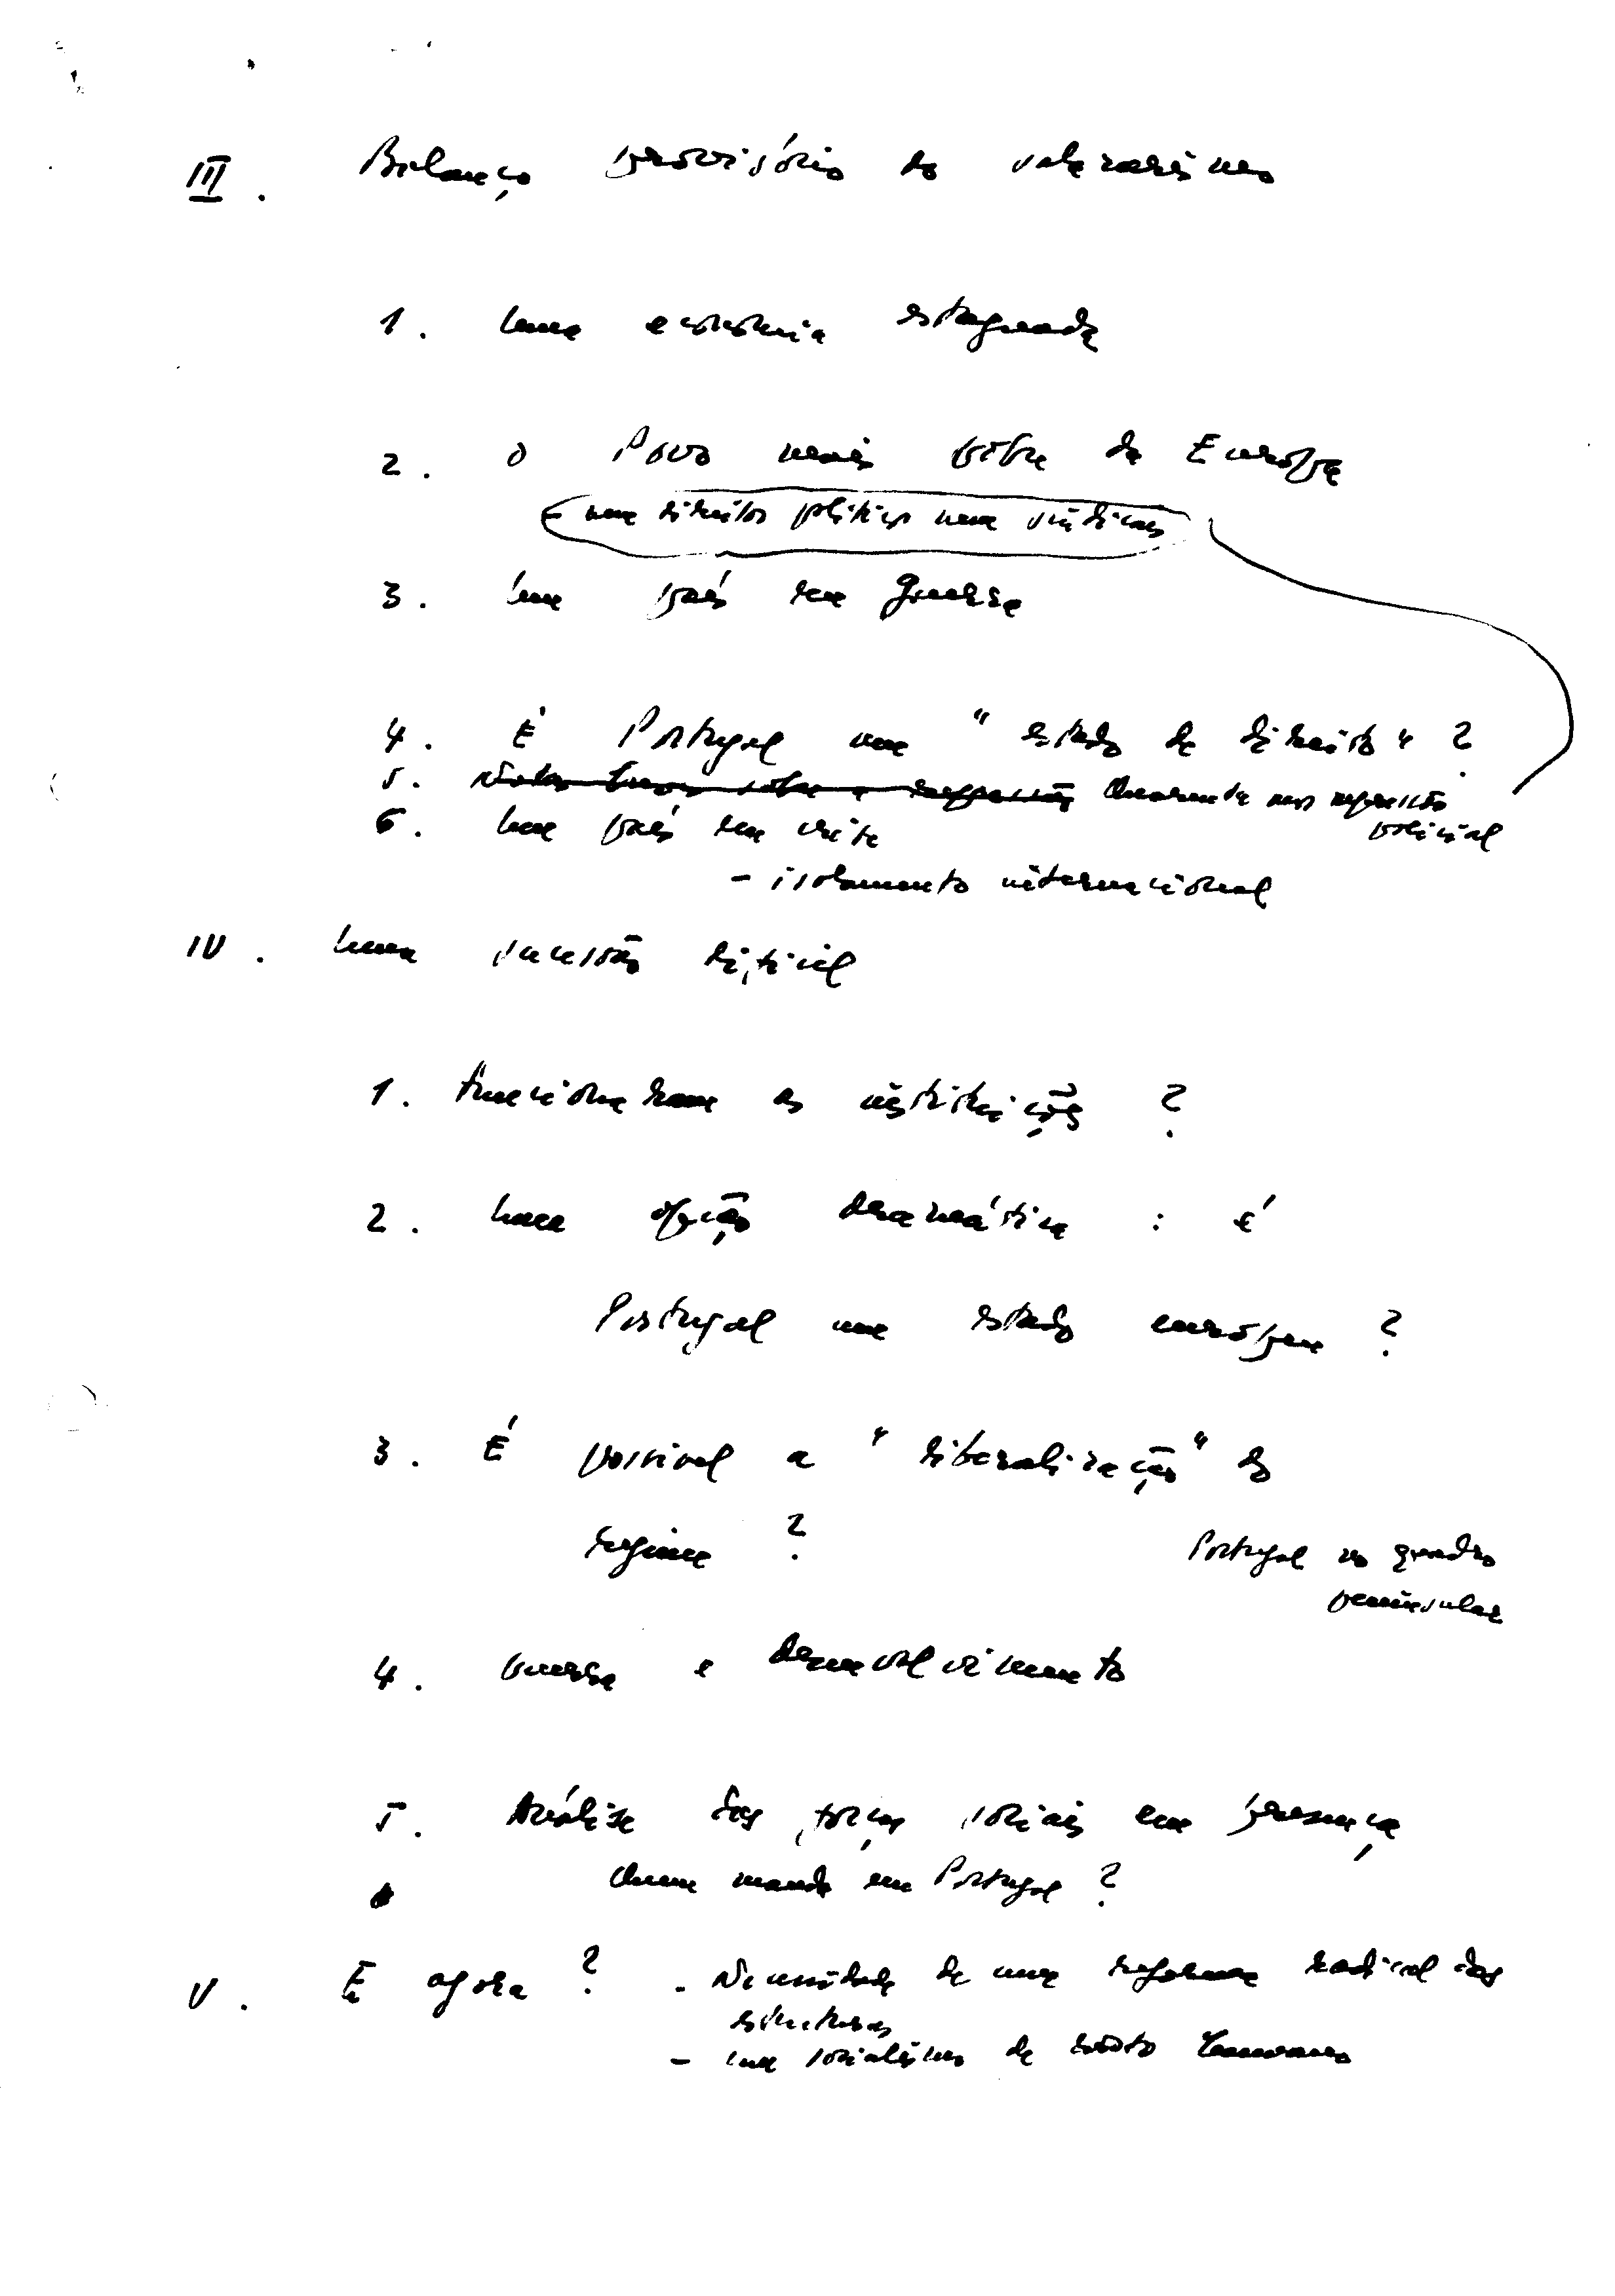 III. Balanço provisório do salazarismo
1. Uma economia estagnada
2. O Povo mais pobre da Europa
- nem direitos políticos nem sindicais
3. Um país em guerra
4. É Portugal um "estado de direito"?
5. Notas breves sobre a repressão Quarenta anos repressão
policial
6. Um país em crise
- isolamento internacional
IV. Uma sucessão difícil
1. Funcionaram as instituições?
2. Uma opção dramática: é
Portugal um estado europeu?
3. É possível a "liberalização" do
regime?
Portugal no quadro
peninsular
4. Guerra e desenvolvimento
5. Análise das forças sociais em presença
Quem manda em Portugal?
V. E agora? - Necessidade de uma reforma radical das
estruturas
- um socialismo de rosto humano